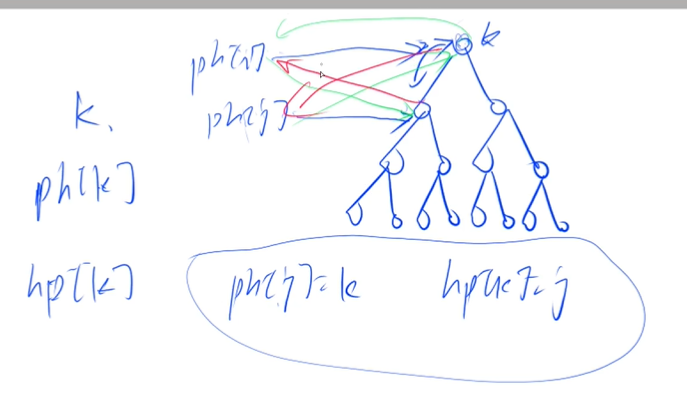 ph[i]
k
ph[j]
k,
ph[k]
hp[k]
ph[j]=k
hp[k]=j